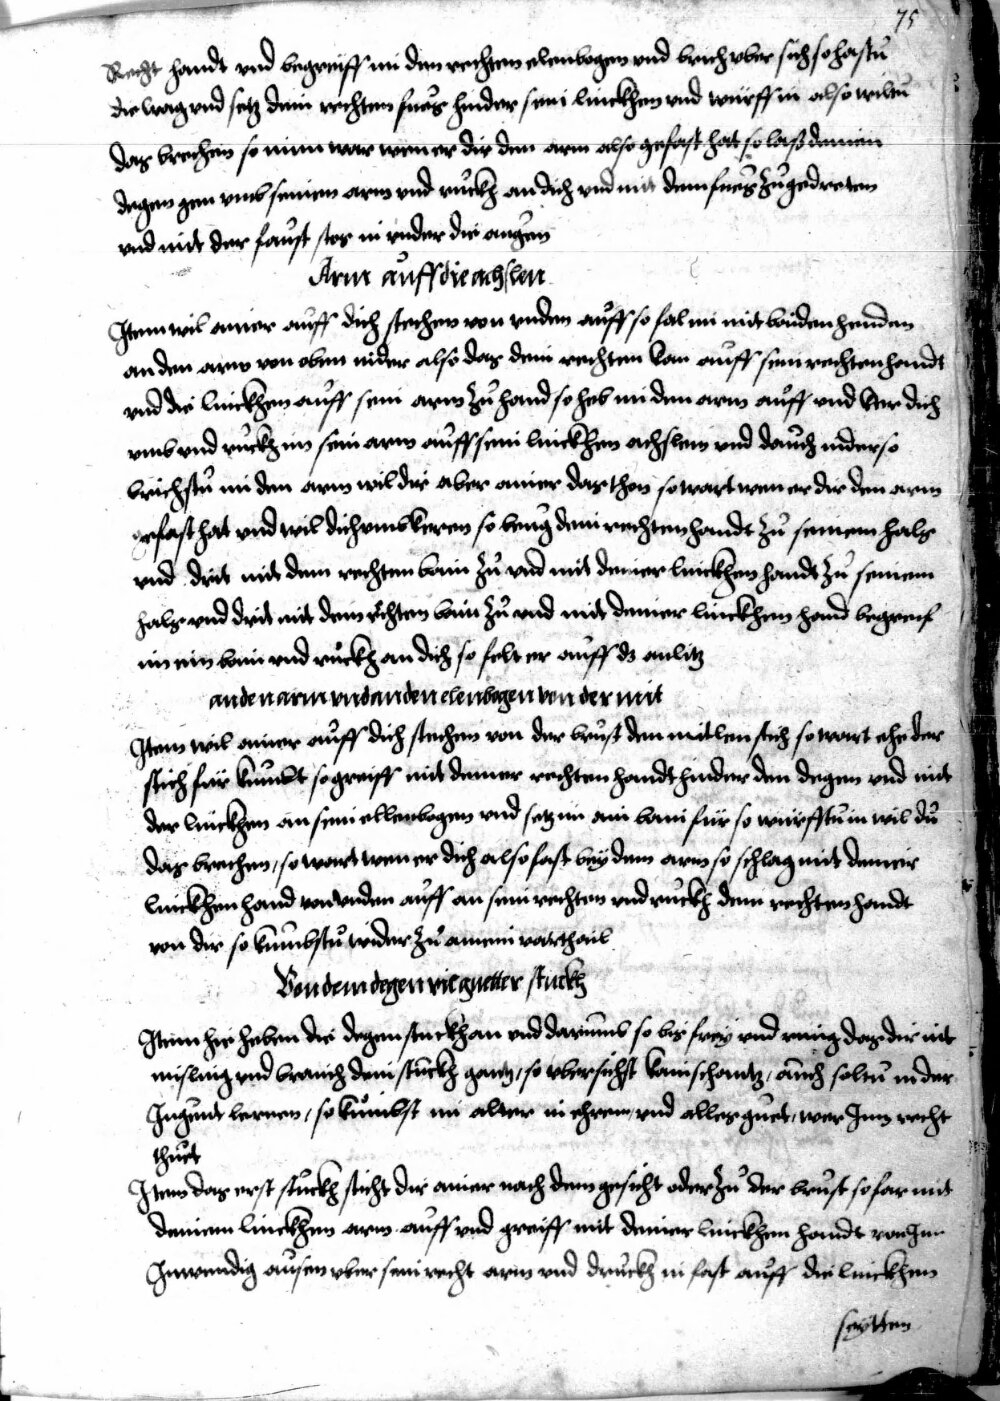 75
Recht handt vnd begreiff im den rechten elenbogen vnd brich vber sich so hastu
die wag vnd setz dein rechten fues hinder sein linckhen vnd würff in also wiltu
das brechen so nim war wen er dir den arm also gefast hat so lass deinen
degen gen vmb seinem arm vnd ruckh an dich vnd mit dem fues zu gedreten
vnd mit der faust stos in vnder die augen
Arm auff die achslen
Item wil ainer auff dich stechen von vnden auff so fal im mit baiden henden
an den arm von oben nider also das dein rechten kom auff sein rechten handt
vnd die linckhen auff sein arm zu hand so heb im den arm auff vnd ker dich
vmb vnd ruckh im sein arm auff sein linckhen achslen vnd dauch nider so
brichstu im den arm wil dir aber ainer das thon so wart wen er dir den arm
gefast hat vnd wil dich vmbkeren so beug dein rechten handt zu seinem hals
vnd drit mit dem rechten bain zu vnd mit deiner linckhen handt zu seinem
hals vnd drit mit dem rechten bain zu vnd mit deiner linckhen hand begreif
im ein bain vnd ruckh an dich so felt er auff dz anlitz
an den arm vnd an den elenbogen von der mit
Item wil ainer auff dich stechen von der brust den mitlen stich so wart ehe der
stich für kumbt so greiff mit deiner rechten handt hinder den degen vnd mit
der linckhen an sein ellenbogen vnd setz im ain bain für so würfftu in wil du
das brechen, so wart wen er dich also fast bey dem arm so schlag mit deiner
linckhen hand von vnden auff an sein rechten vnd ruckh dein rechten handt
von dir so kumbstu wider zu ainem vorthail
Von dem degen vil guetter stuckh
Item hie heben die degen stuckh an vnd darumb so bis frey vnd ring das dir nit
misling vnd brauch dein stuckh gantz, so vbersichst kain schantz, auch soltu in der
Jugent lernen, so kumbst im alter in ehren, vnd alles guet, wer Jm recht
thuet
Item das erst stuckh sticht dir ainer nach dem gesicht oder zu der brust so far mit
deinem linckhen arm auff vnd greiff mit deiner linckhen handt von Jm
Inwendig ausen vber sein recht arm vnd druckh in fast auff die linckhen
seytten